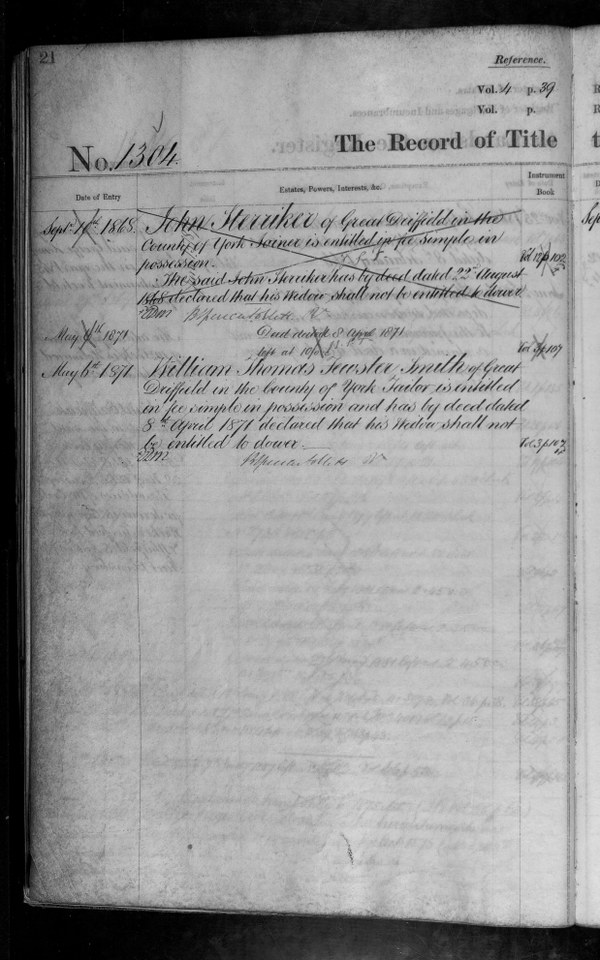 21
Reference.
Vol. 4 p. 39
Vol. p.
The Record of Title
No. 1304
Date of Entry
Estates, Powers, Interests, &c.
Instrument Book
Sept. 4th. 1868. John Sterriker of Great Driffield in the
County of York Joiner is entitled in fee simple in
possession. Vol. p 102
The said John Sterriker has by deed dated 22nd August
1868 declared that his Widow shall not be entitled to dower
May 6th 1871 Deed dated 8 April 1871
left at Vol. 3 p 107
May 6th 1871 William Thomas Fewster Smith of Great
Driffield in the County of York Tailor is entitled
in fee simple in possession and has by deed dated
8th April 1871 declared that his Widow shall not
be entitled to dower. Vol. 3 p 107